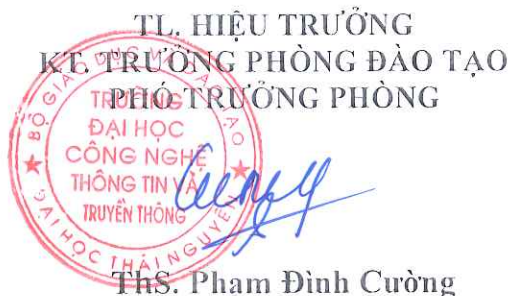 TL. HIỆU TRƯỞNG
KT. TRƯỞNG PHÒNG ĐÀO TẠO
PHÓ TRƯỞNG PHÒNG
BỘ GIÁO DỤC VÀ ĐÀO TẠO
TRƯỜNG
ĐẠI HỌC
CÔNG NGHỆ
THÔNG TIN VÀ
TRUYỀN THÔNG
ĐẠI HỌC THÁI NGUYÊN
ThS. Phạm Đình Cường